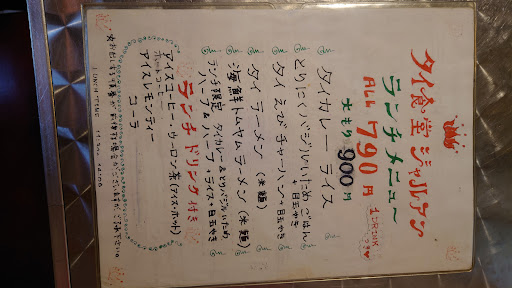 タイ食堂 ジャルアン
ランチメニュー
ALL 790円
1 DRINK付
大もり 900円
タイカレーライス
とりにくバジルいためごはん 目玉やき
タイえびチャーハン+目玉やき
タイラーメン (米麺)
海鮮トムヤムラーメン (米麺)
ランチ限定 タイカレー&とりバジルいため
ハーフ&ハーフ+ライス+目玉やき
ランチドリンク付き
アイスコーヒー・ウーロン茶(アイス・ホット)
アイスレモンティー
コーラ